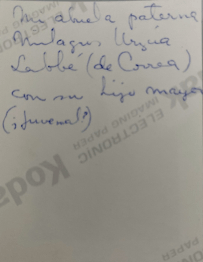 Mi abuela paterna
Milagros Urzúa
Labbé (de Correa)
con su hijo mayor
(¿Juvenal?)
Kodak
ELECTRONIC
IMAGING PAPER